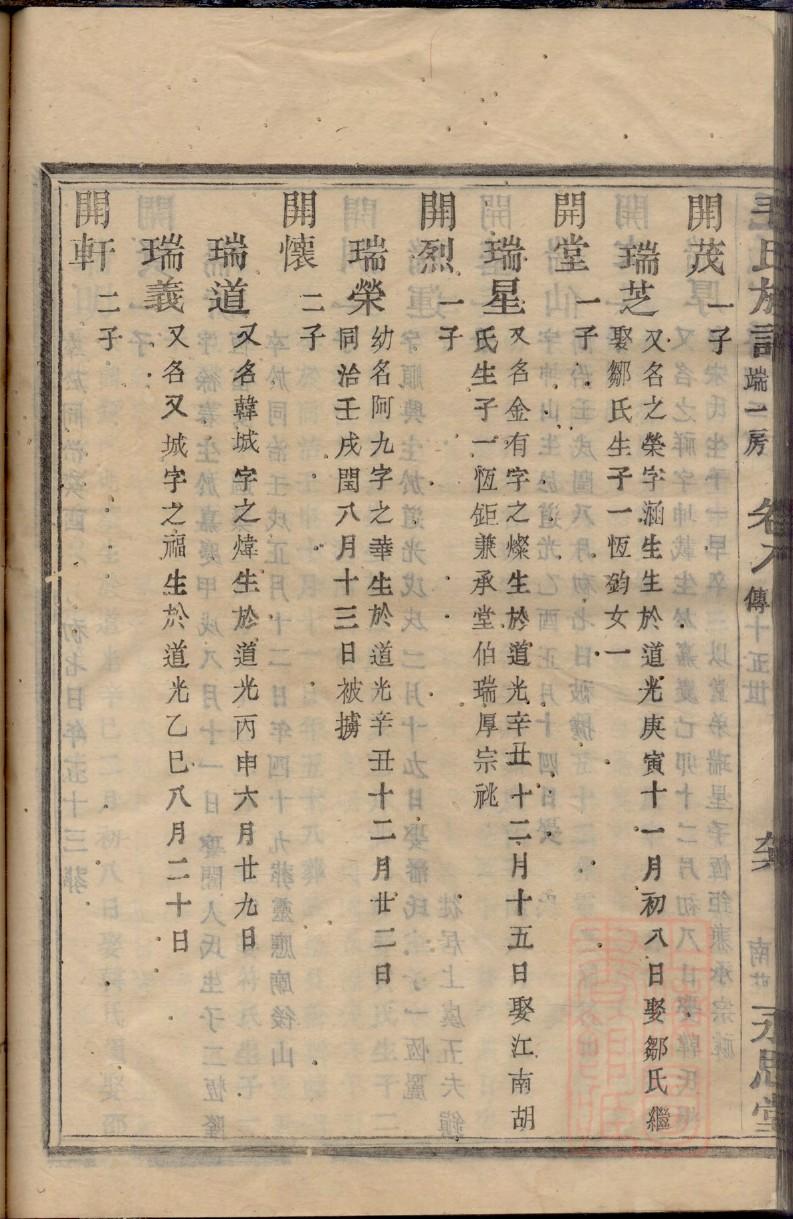 毛氏族譜 端一房 卷八 傳十五世 永思堂
開茂 一子
瑞芝 又名之榮字涵生生於道光庚寅十一月初八日娶鄒氏繼
娶鄒氏生子一恆鈞女一
開堂 一子
瑞星 又名金有字之燦生於道光辛丑十二月十五日娶江南胡
氏生子一恆鉅兼承堂伯瑞厚宗祧
開烈 一子
瑞榮 幼名阿九字之華生於道光辛丑十二月廿二日
同治壬戌閏八月十三日被擄
開懷 二子
瑞道 又名韓城字之煒生於道光丙申六月廿九日
瑞義 又名又城字之福生於道光乙巳八月二十日
開軒 二子